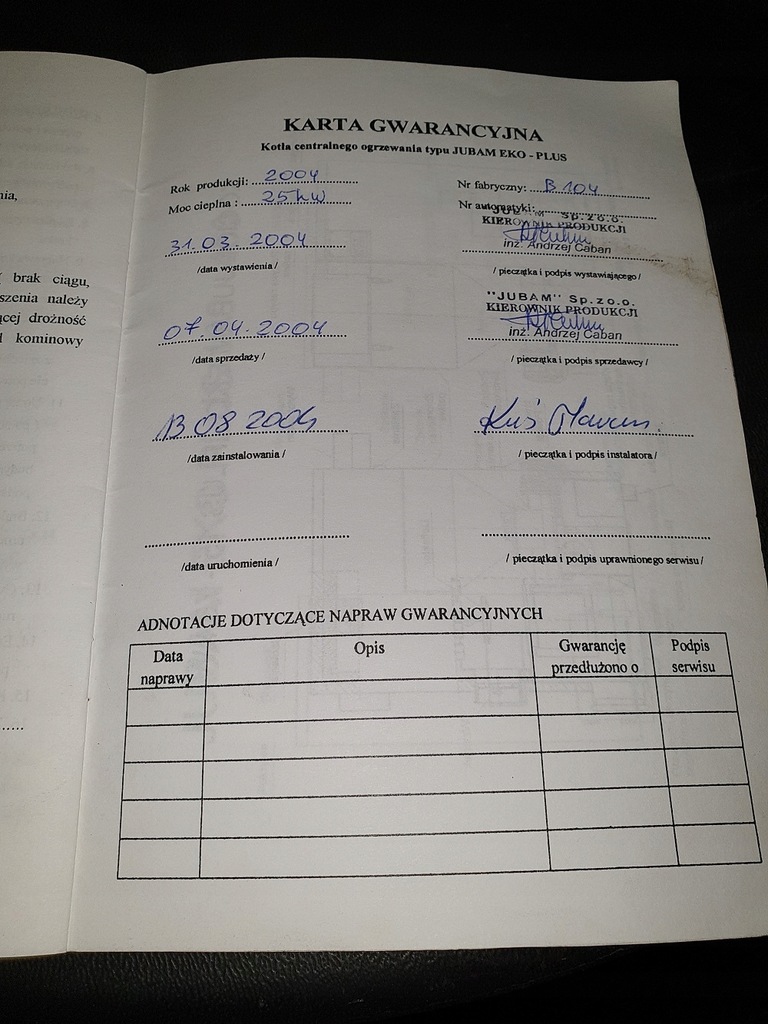 nia,
brak ciągu,
szenia należy
ącej drożność
kominowy
KARTA GWARANCYJNA
Kotła centralnego ogrzewania typu JUBAM EKO - PLUS
Rok produkcji: 2004
Nr fabryczny: B 104
Moc cieplna : 25kW
Nr automatyki:
Sp.zo.o.
KIEROWNIK PRODUKCJI
inż. Andrzej Caban
31.03.2004
/data wystawienia /
/ pieczątka i podpis wystawiającego/
"JUBAM" Sp.zo.o.
KIEROWNIK PRODUKCJI
inż. Andrzej Caban
07.04.2004
/data sprzedaży /
/ pieczątka i podpis sprzedawcy/
13 08 2004
Kuś
/data zainstalowania /
/ pieczątka i podpis instalatora/
/data uruchomienia /
/ pieczątka i podpis uprawnionego serwisu/
ADNOTACJE DOTYCZĄCE NAPRAW GWARANCYJNYCH
Data naprawy
Opis
Gwarancję przedłużono o
Podpis serwisu